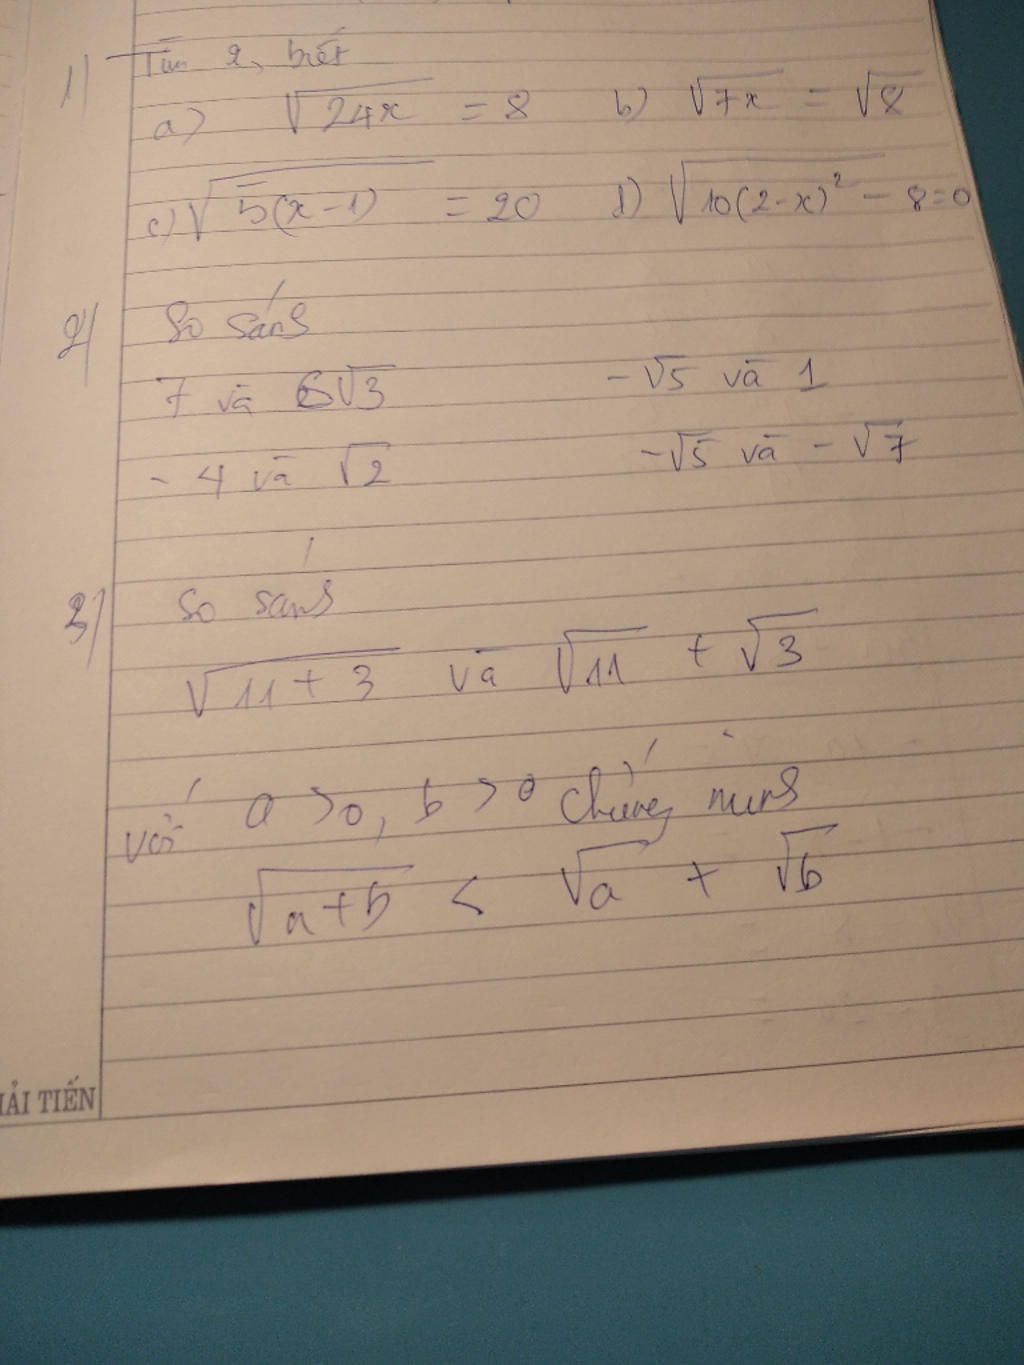 1) Tìm x, biết
a) √24x = 8 b) √7x = √8
c) √5(x-1) = 20 d) √10(2-x)² - 8=0
2) So sánh
7 và 6√3 -√5 và 1
- 4 và √2 -√5 và - √7
3) So sánh
√11 + 3 và √11 + √3
với a >0, b >0 chứng minh
√a+b < √a + √b
IẢI TIẾN